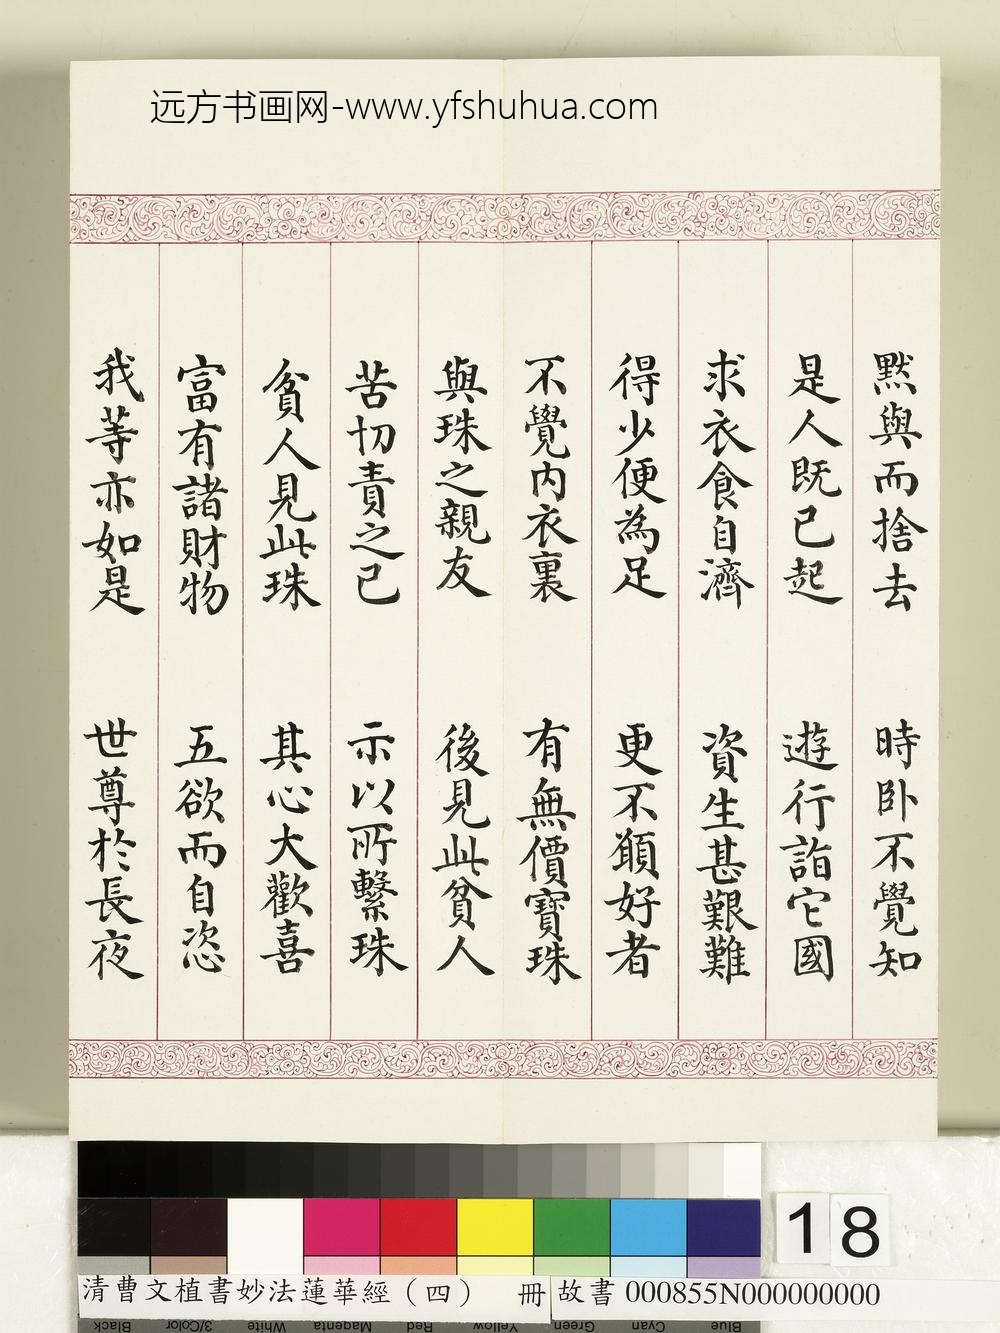 远方书画网-www.yfshuhua.com
默與而捨去 時卧不覺知
是人既已起 遊行詣它國
求衣食自濟 資生甚艱難
得少便為足 更不願好者
不覺内衣裏 有無價寶珠
與珠之親友 後見此貧人
苦切責之已 示以所繫珠
貧人見此珠 其心大歡喜
富有諸財物 五欲而自恣
我等亦如是 世尊於長夜
18
清曹文植書妙法蓮華經（四） 冊 故書 000855N000000000
Black 3/Color White Magenta Red Yellow Green Cyan Blue